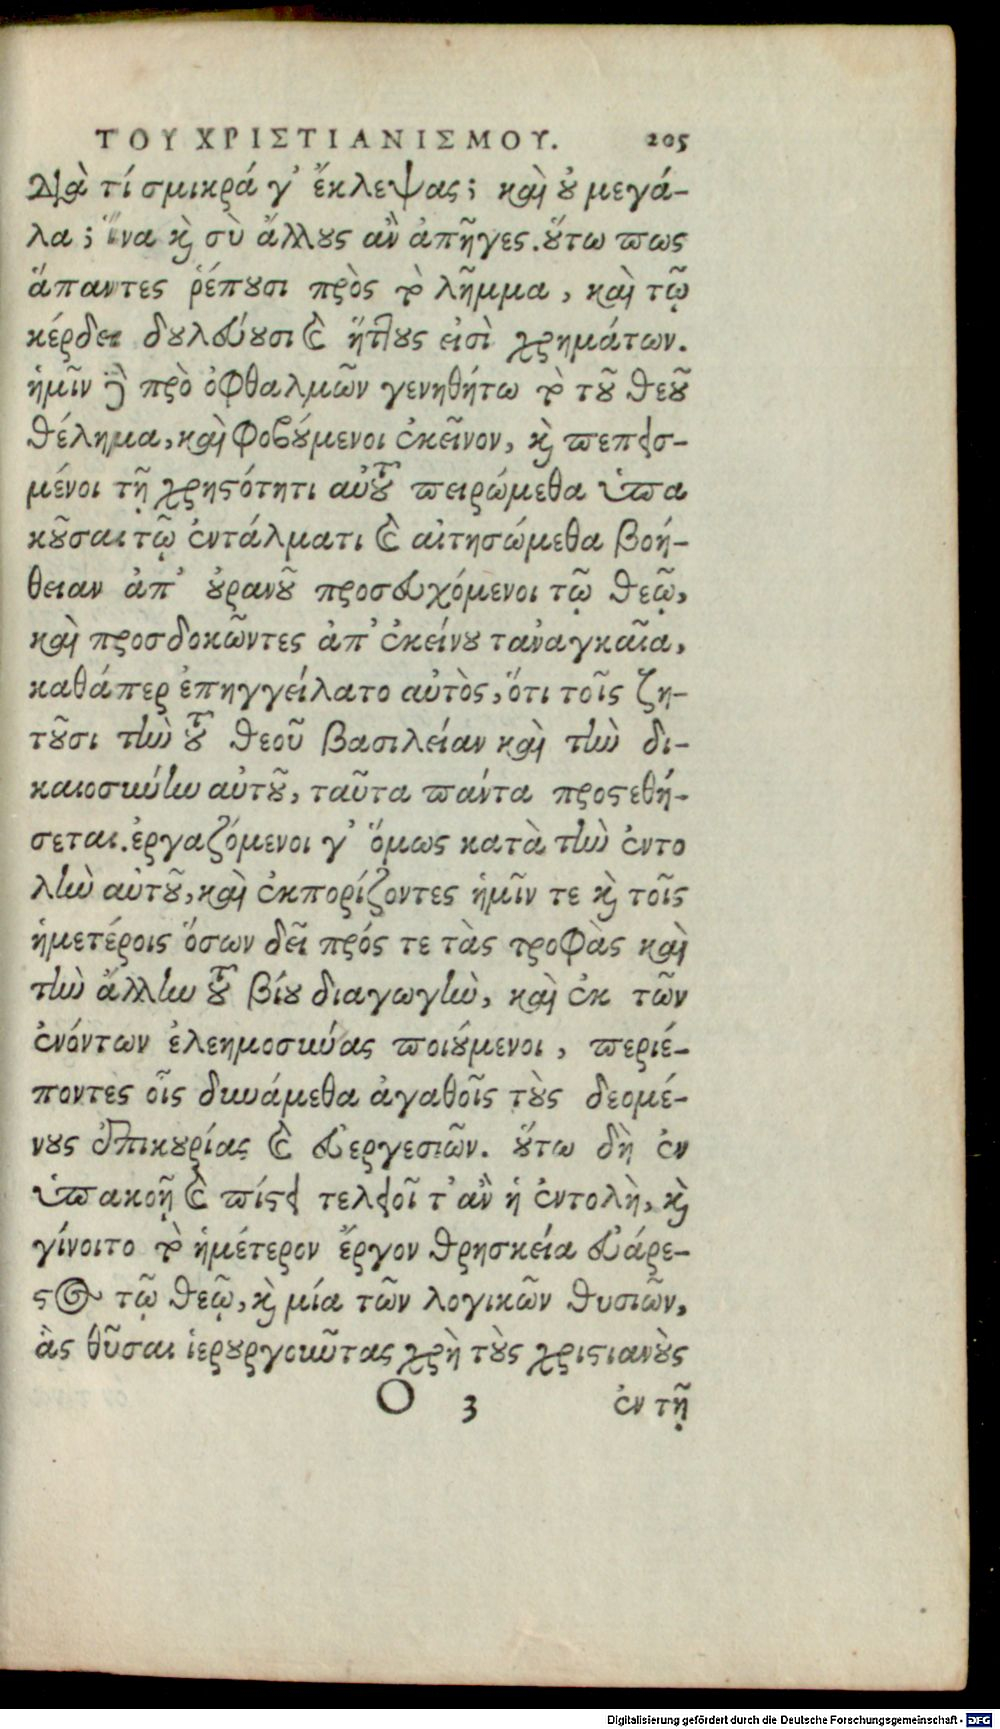 ΤΟΥ ΧΡΙΣΤΙΑΝΙΣΜΟΥ. 205
Διὰ τί σμικρά γ' ἔκλεψας; καὶ ȣ μεγά-
λα; ἵνα ϗ σὺ ἄλλȣς ἂν ἀπῆγες. ȣ̔́τω πως
ἅπαντες ῥέπȣσι πρὸς τὸ λῆμμα, καὶ τῷ
κέρδει δȣλεύȣσι καὶ ἥττȣς εἰσὶ χρημάτων.
ἡμῖν δὲ πρὸ ὀφθαλμῶν γενηθήτω τὸ τȣ͂ θεȣ͂
θέλημα, καὶ φοβȣ́μενοι ἐκεῖνον, ϗ πεπεισ-
μένοι τῇ χρηϛότητι αὐτȣ͂ πειρώμεθα ὑπα
κȣ͂σαι τῷ ἐντάλματι καὶ αἰτησώμεθα βοή-
θειαν ἀπ' ȣ̓ρανȣ͂ προσευχόμενοι τῷ θεῷ,
καὶ προσδοκῶντες ἀπ' ἐκείνȣ τἀναγκαῖα,
καθάπερ ἐπηγγείλατο αὐτὸς, ὅτι τοῖς ζη-
τȣ͂σι τὴν τȣ͂ θεοῦ βασιλείαν καὶ τὴν δι-
καιοσύνην αὐτȣ͂, ταῦτα πάντα προϛεθή-
σεται. ἐργαζόμενοι γ' ὅμως κατὰ τὴν ἐντο
λὴν αὐτȣ͂, καὶ ἐκπορίζοντες ἡμῖν τε ϗ τοῖς
ἡμετέροις ὅσων δεῖ πρός τε τὰς τροφὰς καὶ
τὴν ἄλλην τȣ͂ βίȣ διαγωγὴν, καὶ ἐκ τῶν
ἐνόντων ἐλεημοσύνας ποιȣ́μενοι, περιέ-
ποντες οἷς δυνάμεθα ἀγαθοῖς τȣ̀ς δεομέ-
νȣς ἐπικȣρίας καὶ εὐεργεσιῶν. ȣ̔́τω δὴ ἐν
ὑπακοῇ καὶ πίϛει τελειοῖτ' ἂν ἡ ἐντολὴ, ϗ
γίνοιτο τὸ ἡμέτερον ἔργον θρησκεία εὐάρε-
ϛος τῷ θεῷ, ϗ μία τῶν λογικῶν θυσιῶν,
ἃς θῦσαι ἱερȣργοῦντας χρὴ τȣ̀ς χριϛιανȣ̀ς
O 3 ἐν τῇ
Digitalisierung gefördert durch die Deutsche Forschungsgemeinschaft - DFG